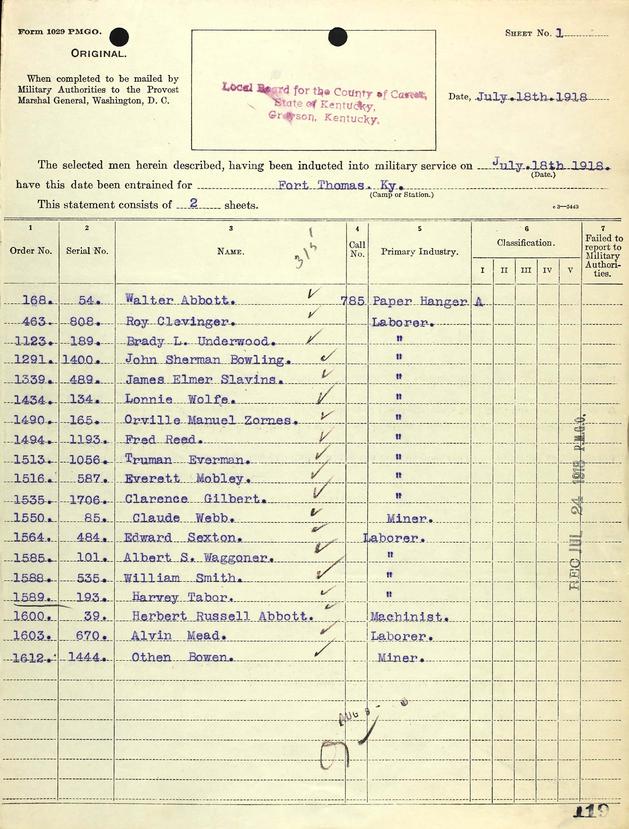 Form 1029 PMGO.
ORIGINAL.
When completed to be mailed by
Military Authorities to the Provost
Marshal General, Washington, D. C.
Local Board for the County of Carter,
State of Kentucky,
Grayson, Kentucky.
SHEET No. 1
Date, July.18th.1918
The selected men herein described, having been inducted into military service on July.18th.1918.
(Date.)
have this date been entrained for Fort Thomas. Ky.
(Camp or Station.)
This statement consists of 2 sheets.
1 2 3 4 5 6 7
Order No. Serial No. NAME. Call No. Primary Industry. Classification. Failed to report to Military Authorities.
I II III IV V
168. 54. Walter Abbott. 785 Paper Hanger A
463. 808. Roy Clevinger. Laborer.
1123. 189. Brady L. Underwood. "
1291. 1400. John Sherman Bowling. "
1339. 489. James Elmer Slavins. "
1434. 134. Lonnie Wolfe. "
1490. 165. Orville Manuel Zornes. "
1494. 1193. Fred Reed. "
1513. 1056. Truman Everman. "
1516. 587. Everett Mobley. "
1535. 1706. Clarence Gilbert. "
1550. 85. Claude Webb. Miner.
1564. 484. Edward Sexton. Laborer.
1585. 101. Albert S. Waggoner. "
1588. 535. William Smith. "
1589. 193. Harvey Tabor. "
1600. 39. Herbert Russell Abbott. Machinist.
1603. 670. Alvin Mead. Laborer.
1612. 1444. Othen Bowen. Miner.
REC JUL 24 1918 P.M.G.O.
AUG 8
119